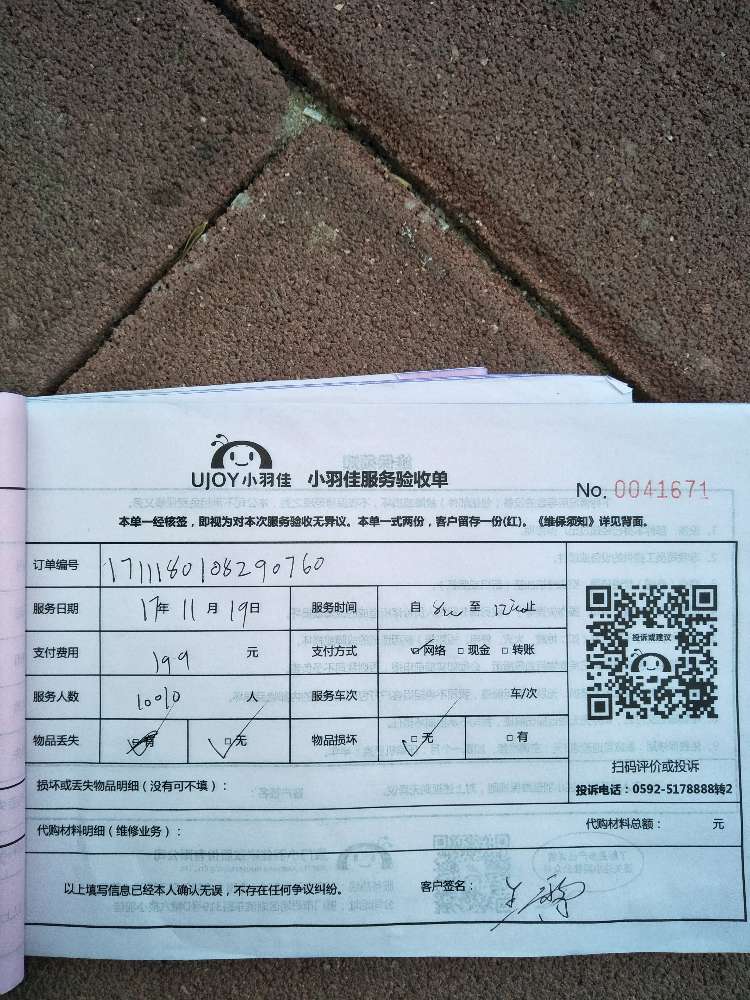 UJOY小羽佳 小羽佳服务验收单
No. 0041671
本单一经核签，即视为对本次服务验收无异议。本单一式两份，客户留存一份(红)。《维保须知》详见背面。
订单编号 1711180108290760
服务日期 17年 11月 19日 服务时间 自 8:00 至 12:00止
支付费用 199 元 支付方式 网络 □现金 □转账
服务人数 人 服务车次 车/次
物品丢失 □有 □无 物品损坏 □无 □有
投诉或建议
扫码评价或投诉
投诉电话：0592-5178888转2
损坏或丢失物品明细（没有可不填）：
代购材料明细（维修业务）： 代购材料总额： 元
以上填写信息已经本人确认无误，不存在任何争议纠纷。 客户签名：